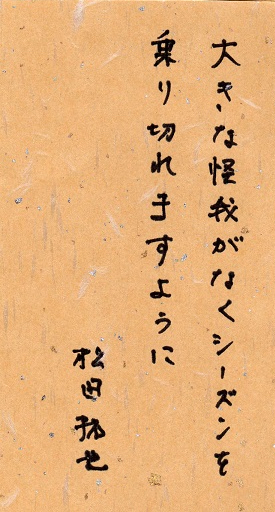 大きな怪我がなくシーズンを
乗り切れますように
松田拓也